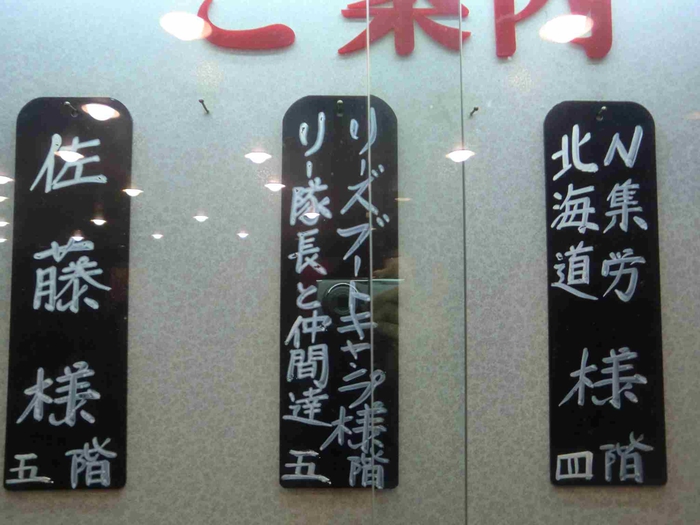 ご案内
N集労
北海道
様
四階
リーズブートキャンプ様
リー隊長と仲間達
五階
佐藤様
五階